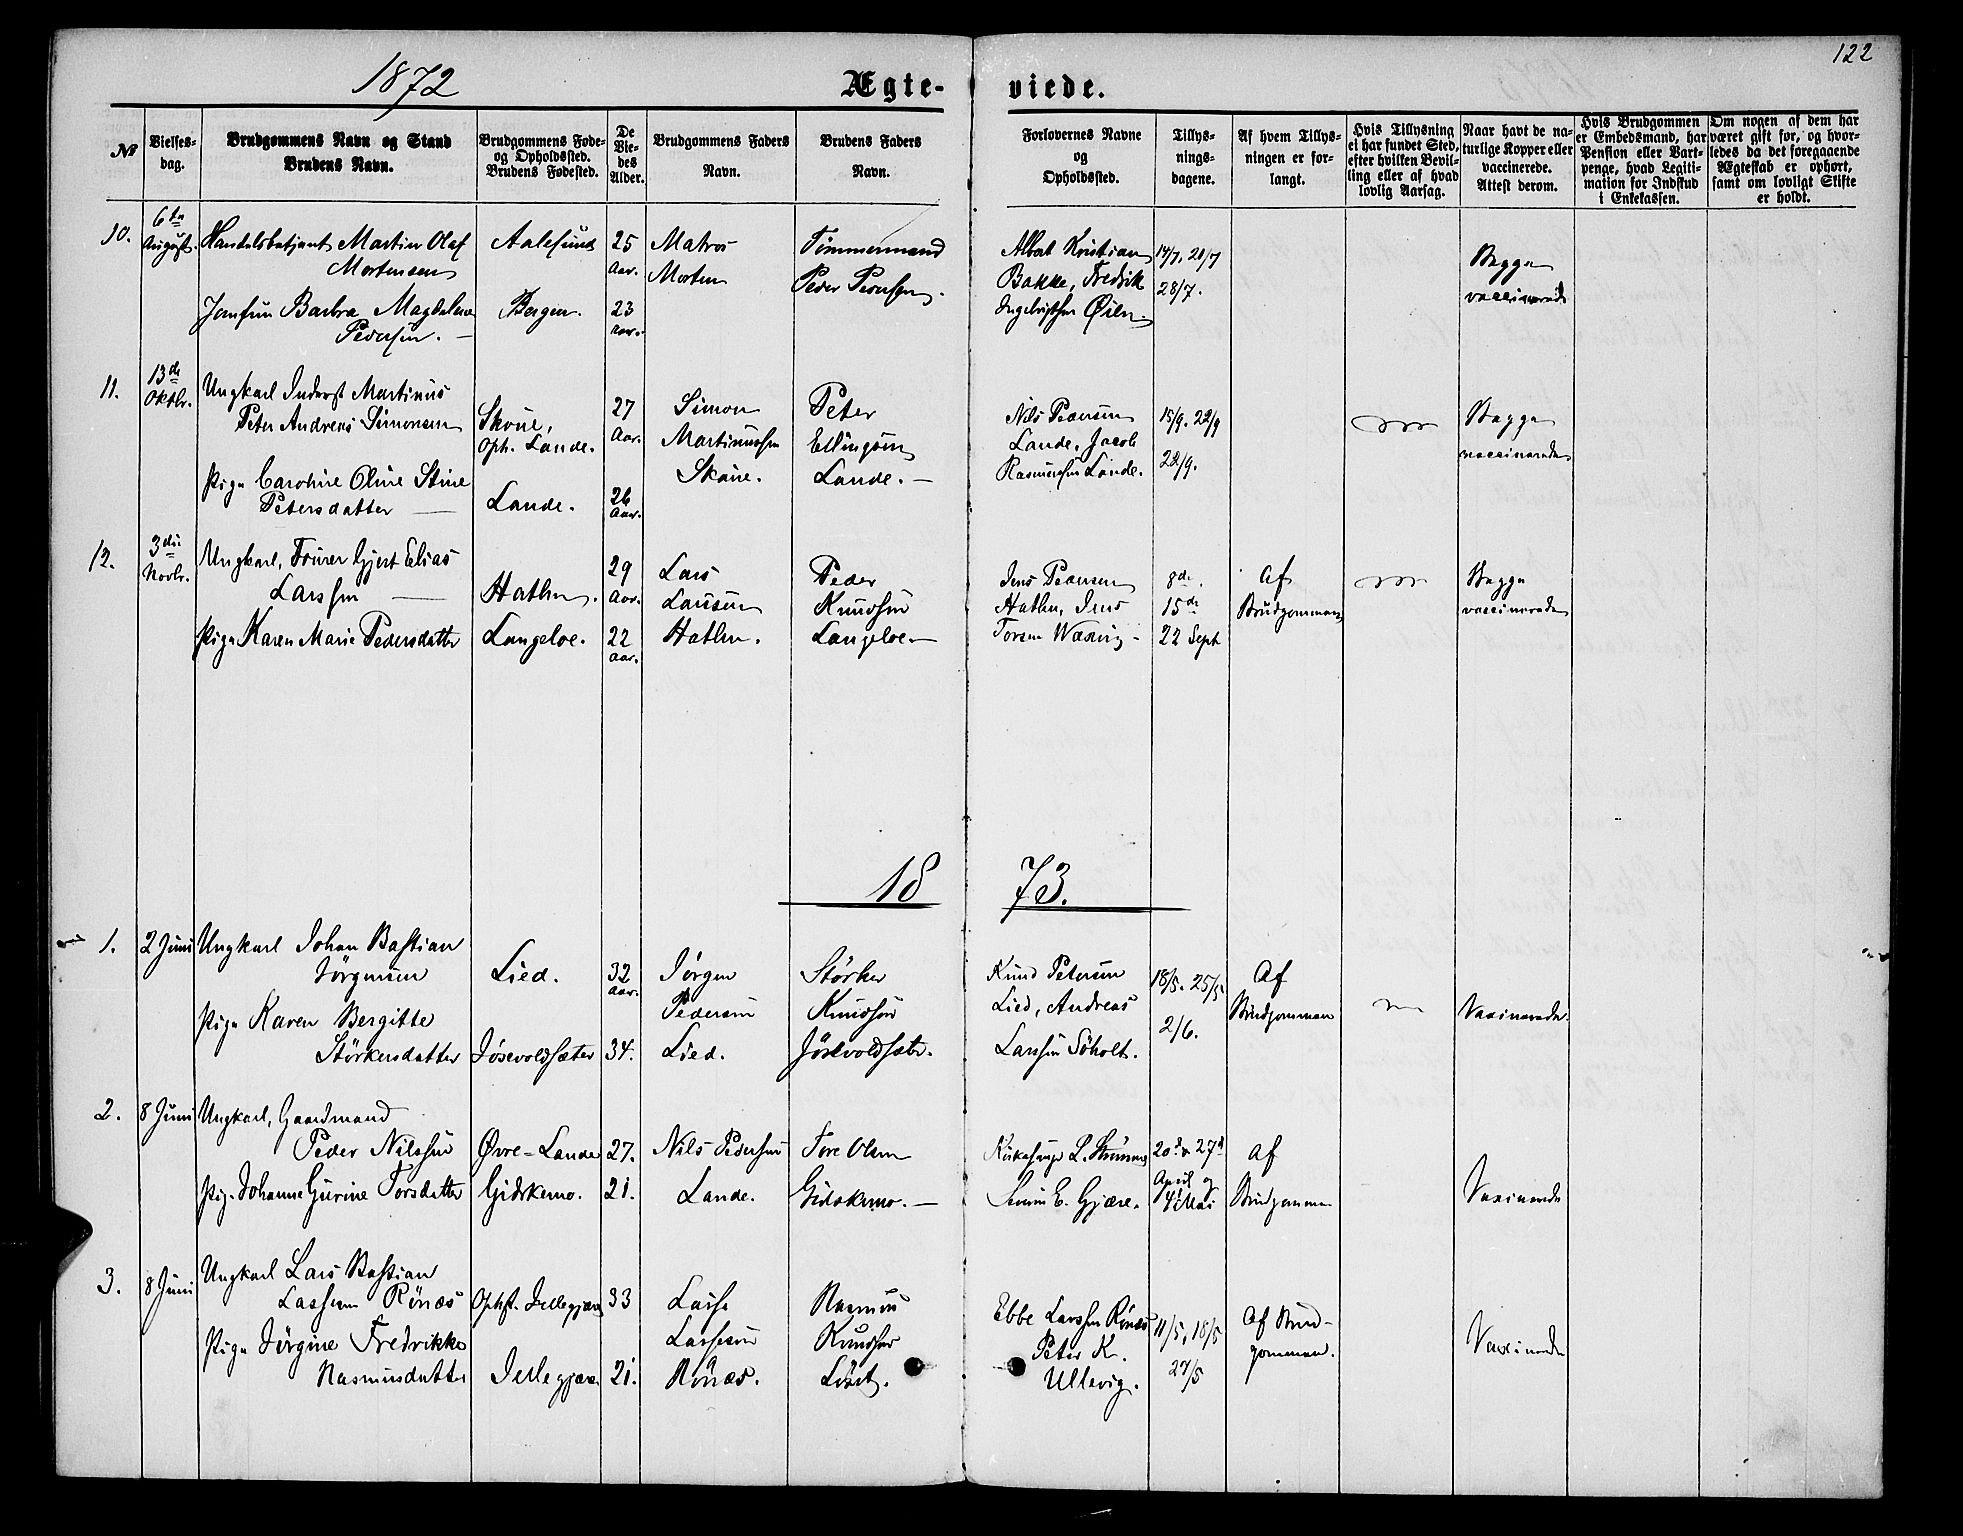 1872
Ægte-
viede.
122
№
Vielses-
dag.
Brudgommens Navn og Stand
Brudens Navn.
Brudgommens Føde-
og Opholdssted.
Brudens Fødested.
De
Vie-
des
Alder.
Brudgommens Faders
Navn.
Brudens Faders
Navn.
Forlovernes Navne
og
Opholdssted.
Tillys-
nings-
dagene.
Af hvem Tillys-
ningen er for-
langt.
Hvis Tillysning
ei har fundet Sted,
efter hvilken Bevil-
ling eller af hvad
lovlig Aarsag.
Naar havt de na-
turlige Kopper eller
vaccinerede.
Attest derom.
Hvis Brudgommen
er Embedsmand, har
Pension eller Vart-
penge, hvad Legiti-
mation for Indskud
i Enkekassen.
Om nogen af dem har
været gift før, og hvor-
ledes da det foregaaende
Ægteskab er ophørt,
samt om lovligt Skifte
er holdt.
10.
6te
August.
Handelsbetjent Martin Olaf
Mortensen
Jomfru Barbra Magdalene
Pedersen. —
Aalesund
Bergen.
25
Aar.
23
Aar.
Matros
Morten
Tømmermand
Peder Pedersen.
Albert Kristian
Bakke, Fredrik
Øien.
14/7, 21/7
28/7.
Begge
vaccinerede
11.
13de
Oktbr.
Ungkarl Inderst Martinus
Peter Andreas Simonsen
Pige Caroline Oline Stine
Petersdatter —
Skoue,
Oph. Lande.
Lande.
27
Aar.
26
Aar.
Simon
Martinussen
Skoue.
Peter
Ellingsen
Lande. —
Nils Pedersen
Lande, Jacob
Rasmussen Lande.
15/9. 22/9
22/9.
Begge
vaccinerede
12.
3die
Novbr.
Ungkarl, Fourer Gjert Elias
Larssen —
Pige Karen Marie Pedersdatter
Hatlen.
Langeloe.
29
Aar.
22
Aar.
Lars
Larssen
Hatlen.
Peder
Knudsen
Langeloe —
Jens Pedersen
Hatlen, Jens
8de.
15de
22 Sept
Af
Brudgommen
Begge
vaccinerede
18
73.
1.
2 Juni
Ungkarl Johan Bastian
Jørgensen
Pige Karen Bergitte
Størkersdatter
Lied.
Jøsevoldsæter
32
Aar.
34.
Jørgen
Pedersen
Lied.
Størker
Knudsen
Jøsevoldsæter.
Knud Petersen
Lied, Andreas
Larssen Søholt.
18/5. 25/5.
2/6.
Af
Brudgommen
Vaxinerede.
2.
8 Juni
Ungkarl, Gaardmand
Peder Nilssen
Pige Johanne Gurine Torsdatter
Øvre-Lande
Gidskemo.
27.
21.
Nils Pedersen
Lande.
Tore Olsen
Gidskemo. —
Kirkesanger L. Strømme
Severin E. Gjære.
20de & 27de
April og
4 Mai
Af
Brudgommen
Vaxinerede
3.
8 Juni
Ungkarl Lars Bastian
Lassesen Rønæs
Pige Jørgine Fredrikke
Rasmusdatter
33
21.
Lasse
Lassesen
Rønæs.
Rasmus
Knudsen
Ebbe Larssen Rønæs
Peter K.
Ullavig.
11/5, 18/5
27/5
Af Brud-
gommen.
Vaxinerede